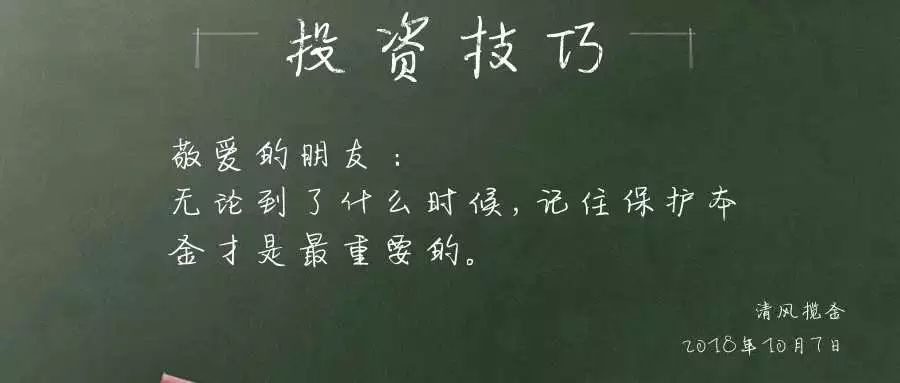 投资技巧
敬爱的朋友：
无论到了什么时候,记住保护本
金才是最重要的。
清风揽金
2018年10月7日